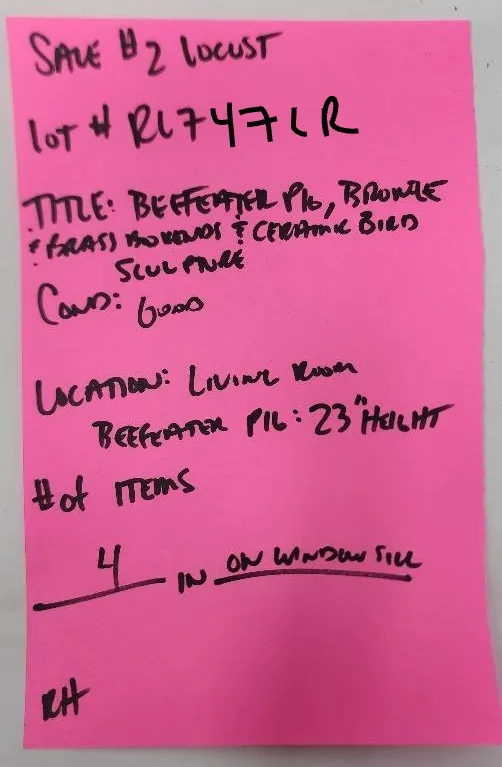 SALE #2 LOCUST
LOT # RL747LR
TITLE: BEEFEATER PIG, BRONZE
& BRASS BOOKENDS & CERAMIC BIRD
SCULPTURE
COND: GOOD
LOCATION: LIVING ROOM
BEEFEATER PIG: 23" HEIGHT
# of ITEMS
4 IN ON WINDOW SILL
RH